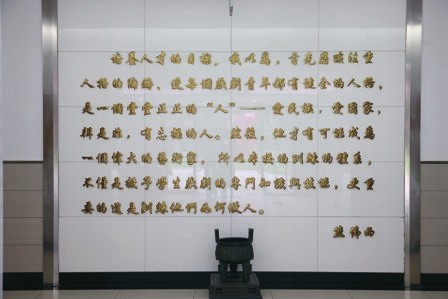 培養人才的目標，我以爲，首先應該注重
人格的陶鑄，使每個戲劇青年都有健全的人格，
是一個堂堂正正的"人"—— 愛民族，愛國家，
辨是非，有志操的人。然後，他才有可能成爲
一個偉大的藝術家，所以本校的訓練的體系，
不僅是授予學生戲劇的專門知識與技能，更重
要的還是訓練他們如何做人。
熊佛西